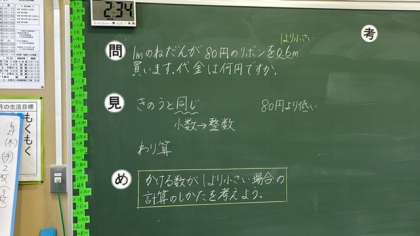 234
考
1より小さい
問
1mのねだんが80円のリボンを0.6m
買います。代金は何円ですか。
見
きのうと同じ
80円より低い
小数→整数
わり算
め
かける数が1より小さい場合の
計算のしかたを考えよう。
月の生活目標
もくもく